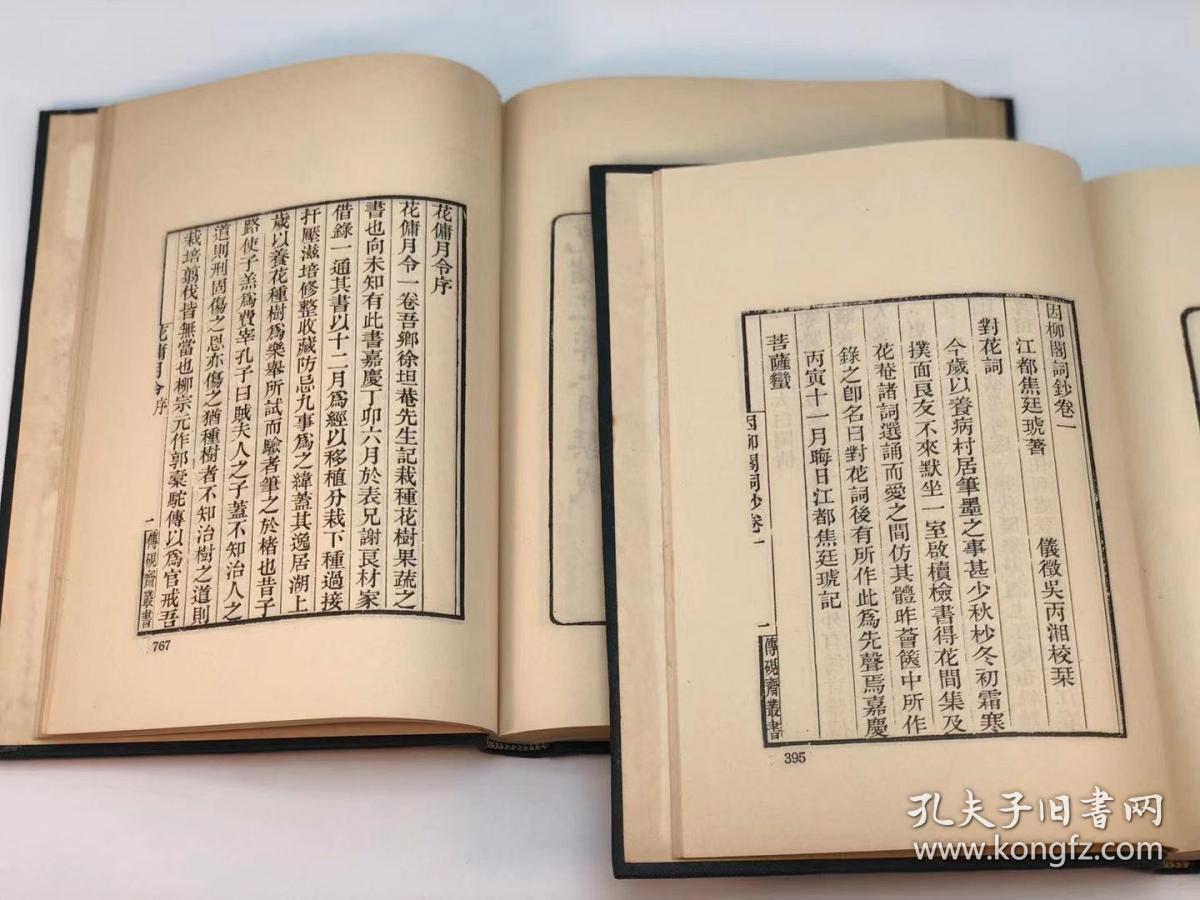 花傭月令序
花傭月令一卷吾鄉徐坦菴先生記栽種花樹果蔬之
書也向未知有此書嘉慶丁卯六月於表兄謝良材家
借錄一通其書以十二月爲經以移植分栽下種過接
扦壓滋培修整收藏防忌九事爲之緯蓋其逸居湖上
歲以養花種樹爲樂舉所試而驗者筆之於楮也昔子
路使子羔爲費宰孔子曰賊夫人之子蓋不知治人之
道則刑固傷之恩亦傷之猶種樹者不知治樹之道則
栽培翦伐皆無當也柳宗元作郭橐駝傳以爲官戒吾
花傭月令序
一
傳硯齋叢書
767
因柳閣詞鈔卷一
江都焦廷琥著
儀徵吳丙湘校栞
對花詞
今歲以養病村居筆墨之事甚少秋杪冬初霜寒
撲面良友不來默坐一室啟櫝檢書得花間集及
花菴諸詞選誦而愛之間仿其體昨薈篋中所作
錄之卽名曰對花詞後有所作此爲先聲焉嘉慶
丙寅十一月晦日江都焦廷琥記
菩薩蠻
因柳閣詞鈔卷一
一
傳硯齋叢書
395
孔夫子旧书网
www.kongfz.com